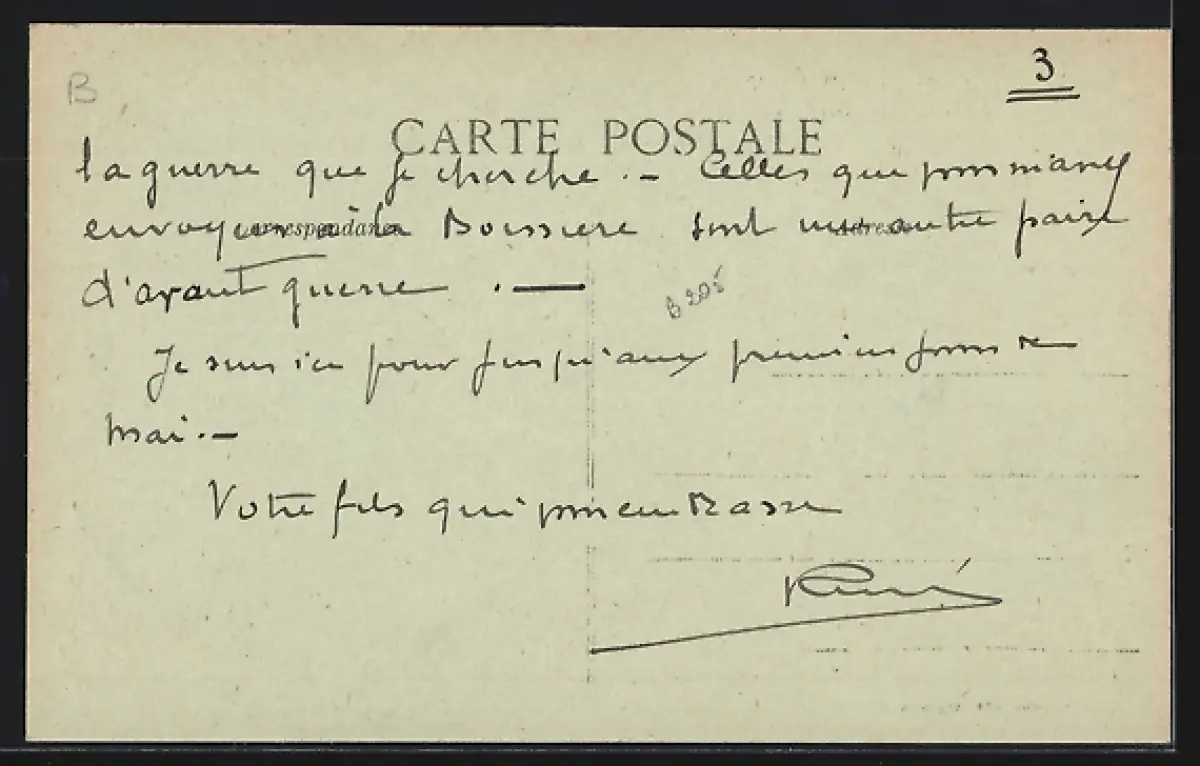 3
B
CARTE POSTALE
la guerre que je cherche . — Celles que vous m'avez
Correspondance Adresse
envoyées à la Boissiere sont une autre paire
d'avant guerre . —
B 205
Je suis ici pour jusqu'aux premiers jours de
mai . —
Votre fils qui vous embrasse
René